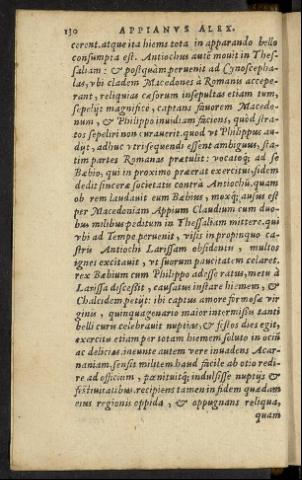 130 APPIANVS ALEX.
cerent. atque ita hiems tota in apparando bello
consumpta est. Antiochus autē mouit in Thes-
saliam: & postquàm peruenit ad Cynoscepha-
las, vbi cladem Macedones à Romanis accepe-
rant, reliquias cæsorum insepultas etiam tum,
sepelijt magnificè, captans fauorem Macedo-
num, & Philippo inuidiam faciens, quòd stra-
tos sepeliri non curauerit. quod vt Philippus au-
dijt, adhuc vtri sequendi essent ambiguus, sta-
tim partes Romanas prætulit: vocatoq; ad se
Bæbio, qui in proximo præerat exercitui, fidem
dedit sincera societatū contrà Antiochū. quam
ob rem laudauit eum Bæbius, moxq; ausus est
per Macedoniam Appium Claudium cum duo-
bus milibus peditum in Thessaliam mittere. qui
vbi ad Tempe peruenit, visis in propinquo ca-
stris Antiochi Larissam obsidentis, multos
ignes excitauit, vt suorum paucitatem celaret.
rex Bæbium cum Philippo adesse ratus, metu à
Larissa discessit, causatus instare hiemem, &
Chalcidem petijt: ibi captus amore formosæ vir
ginis, quinquagenario maior intermissis tanti
belli curis celebrauit nuptias, & festos dies egit,
exercitu etiam per totam hiemem soluto in ociū
ac delicias. ineunte autem vere inuadens Acar-
naniam, sensit militem haud facile ab otio redi-
re ad officium, pœnituitq; indulsisse nuptijs &
festiuitatibus. recipiens tamen in fidem quædam
eius regionis oppida, & oppugnans reliqua,
quam